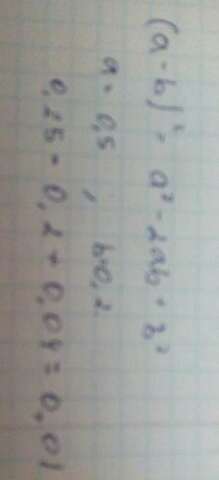 (a - b)² = a² - 2ab + b²
a = 0,5 ; b=0,2
0,25 - 0,2 + 0,04 = 0,01